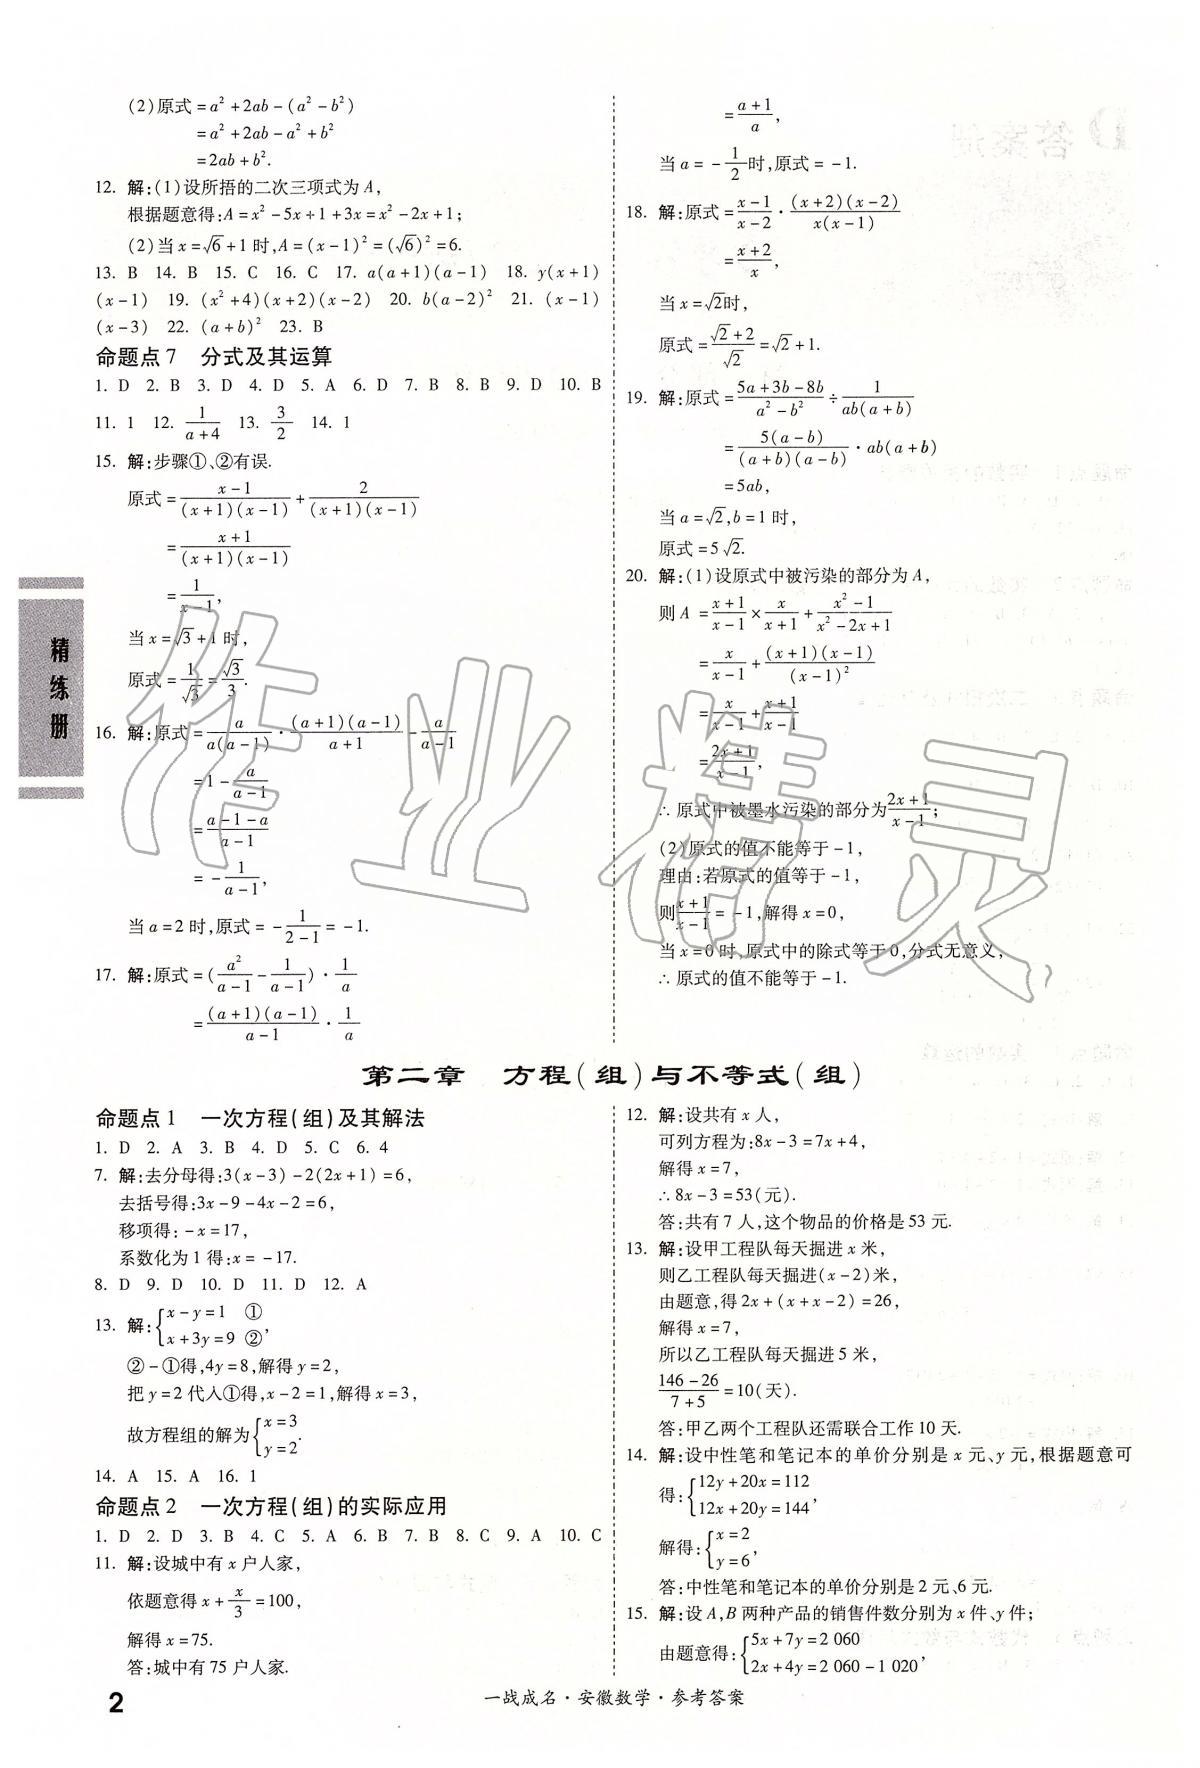 (2)原式=a²+2ab-(a²-b²)
=a²+2ab-a²+b²
=2ab+b².
12. 解:(1)设所捂的二次三项式为A,
根据题意得:A=x²-5x+1+3x=x²-2x+1;
(2)当x=√6+1时,A=(x-1)²=(√6)²=6.
13. B 14. B 15. C 16. C 17. a(a+1)(a-1) 18. y(x+1)
(x-1) 19. (x²+4)(x+2)(x-2) 20. b(a-2)² 21. (x-1)
(x-3) 22. (a+b)² 23. B
命题点7 分式及其运算
1. D 2. B 3. D 4. D 5. A 6. D 7. B 8. B 9. D 10. B
11. 1 12. 1/(a+4) 13. 3/2 14. 1
15. 解:步骤①、②有误.
原式=(x-1)/((x+1)(x-1))+2/((x+1)(x-1))
=(x+1)/((x+1)(x-1))
=1/(x-1),
当x=√3+1时,
原式=1/√3=√3/3.
16. 解:原式=a/(a(a-1))·((a+1)(a-1))/(a+1)-a/(a-1)
=1-a/(a-1)
=(a-1-a)/(a-1)
=-1/(a-1),
当a=2时,原式=-1/(2-1)=-1.
17. 解:原式=(a²/(a-1)-1/(a-1))·1/a
=((a+1)(a-1))/(a-1)·1/a
=(a+1)/a,
当a=-1/2时,原式=-1.
18. 解:原式=(x-1)/(x-2)·((x+2)(x-2))/(x(x-1))
=(x+2)/x,
当x=√2时,
原式=(√2+2)/√2=√2+1.
19. 解:原式=(5a+3b-8b)/(a²-b²)÷1/(ab(a+b))
=5(a-b)/((a+b)(a-b))·ab(a+b)
=5ab,
当a=√2,b=1时,
原式=5√2.
20. 解:(1)设原式中被污染的部分为A,
则A=(x+1)/(x-1)×x/(x+1)+(x²-1)/(x²-2x+1)
=x/(x-1)+((x+1)(x-1))/(x-1)²
=x/(x-1)+(x+1)/(x-1)
=(2x+1)/(x-1),
∴原式中被墨水污染的部分为(2x+1)/(x-1);
(2)原式的值不能等于-1,
理由:若原式的值等于-1,
则(x+1)/(x-1)=-1,解得x=0,
当x=0时,原式中的除式等于0,分式无意义,
∴原式的值不能等于-1.
精练册
第二章 方程(组)与不等式(组)
命题点1 一次方程(组)及其解法
1. D 2. A 3. B 4. D 5. C 6. 4
7. 解:去分母得:3(x-3)-2(2x+1)=6,
去括号得:3x-9-4x-2=6,
移项得:-x=17,
系数化为1得:x=-17.
8. D 9. D 10. D 11. D 12. A
13. 解:{x-y=1 ①
x+3y=9 ②,
②-①得,4y=8,解得y=2,
把y=2代入①得,x-2=1,解得x=3,
故方程组的解为{x=3
y=2.
14. A 15. A 16. 1
命题点2 一次方程(组)的实际应用
1. D 2. D 3. B 4. C 5. A 6. B 7. B 8. C 9. A 10. C
11. 解:设城中有x户人家,
依题意得x+x/3=100,
解得x=75.
答:城中有75户人家.
12. 解:设共有x人,
可列方程为:8x-3=7x+4,
解得x=7,
∴8x-3=53(元).
答:共有7人,这个物品的价格是53元.
13. 解:设甲工程队每天掘进x米,
则乙工程队每天掘进(x-2)米,
由题意,得2x+(x+x-2)=26,
解得x=7,
所以乙工程队每天掘进5米,
(146-26)/(7+5)=10(天).
答:甲乙两个工程队还需联合工作10天.
14. 解:设中性笔和笔记本的单价分别是x元、y元,根据题意可
得:{12y+20x=112
12x+20y=144,
解得:{x=2
y=6,
答:中性笔和笔记本的单价分别是2元、6元.
15. 解:设A,B两种产品的销售件数分别为x件、y件;
由题意得:{5x+7y=2 060
2x+4y=2 060-1 020,
2
一战成名·安徽数学·参考答案
作业精灵